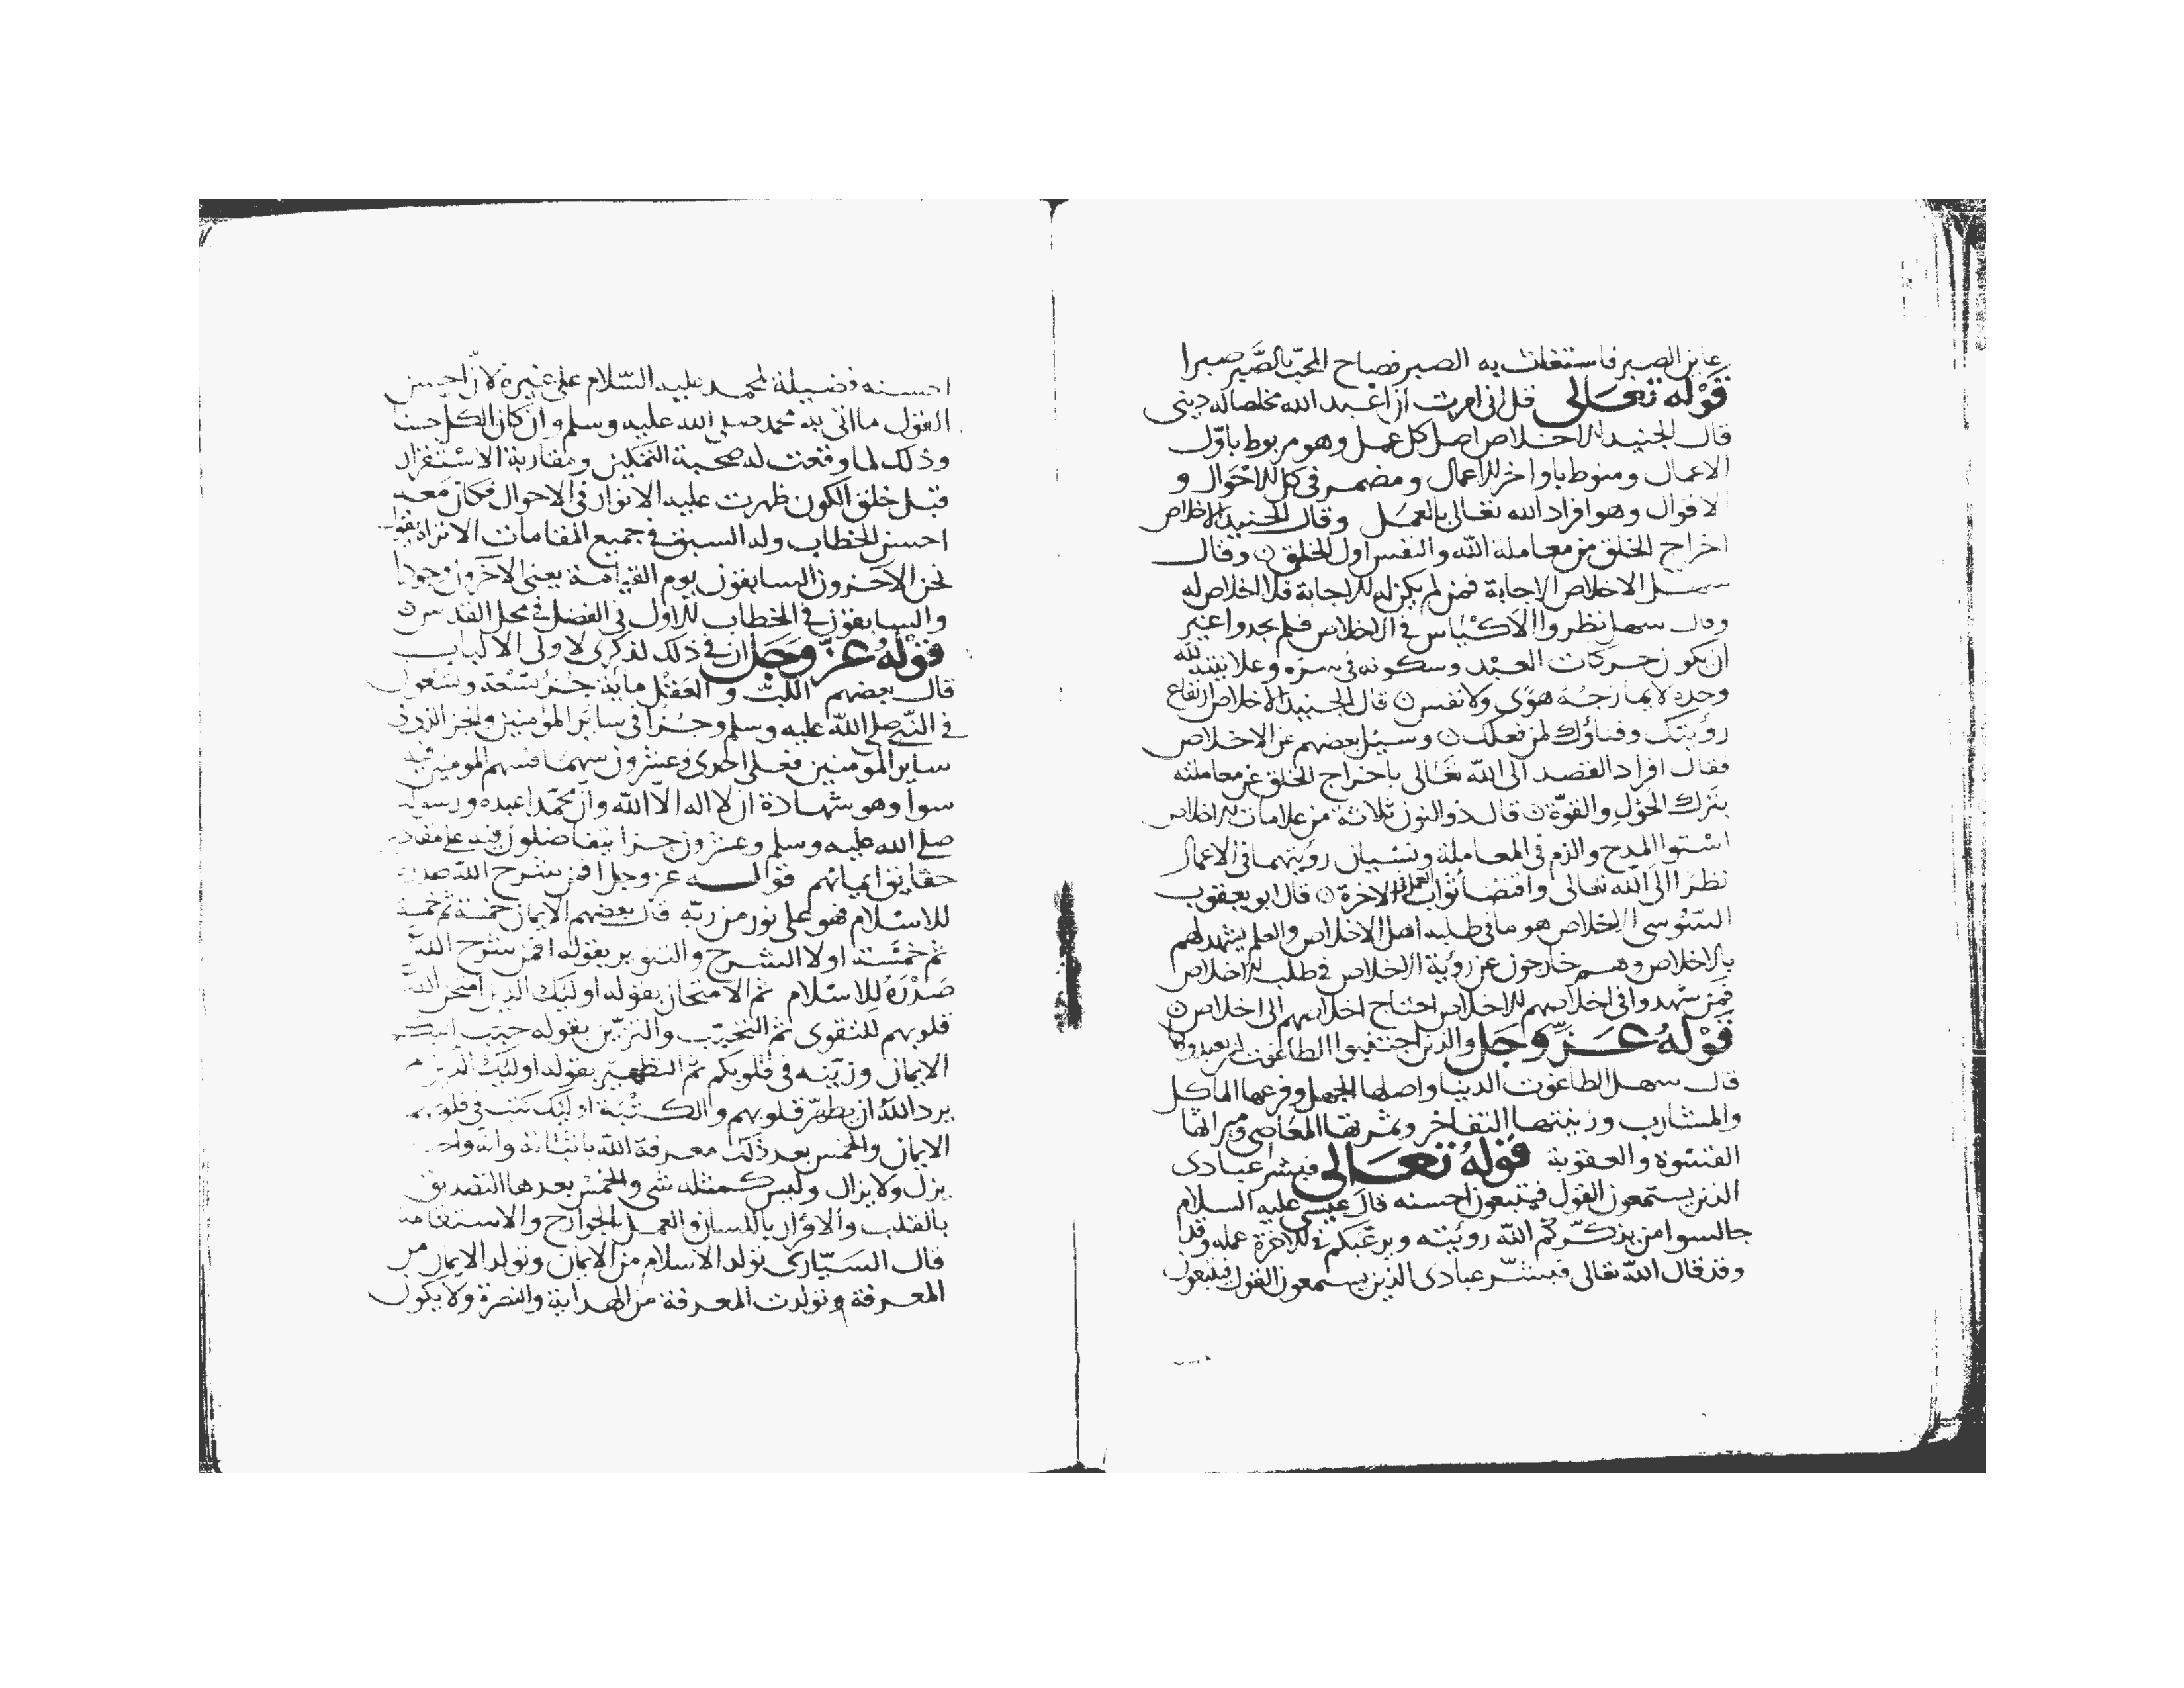 عاين الصبر فاستغاث به الصبر فصاح المحب بالصبر صبرا
قوله تعالى قل انى امرت ان اعبد الله مخلصا له دينى
قال الجنيد الاخلاص اصل كل عمل وهو مربوط باول
الاعمال ومنوط باواخر الاعمال ومضمر فى كل الاحوال و
الاقوال وهو افراد الله تعالى بالعمل وقال الجنيد الاخلاص
اخراج الخلق من معاملة الله والنفس اول الخلق ن وقال
سهل الاخلاص الاجابة فمن لم يكن له الاجابة فلا اخلاص له
وقال سهل نظروا الاكياس فى الاخلاص فلم يجدوا غير
ان يكون حركات العبد وسكونه فى سره وعلانيته لله
وحده لا يمازجه هوى ولا نفس ن قال الجنيد الاخلاص ارتفاع
رؤيتك وفناؤك لمن فعلك ن وسيل بعضهم عن الاخلاص
فقال افراد القصد الى الله تعالى باخراج الخلق عن معاملته
بترك الحول والقوة ن قال ذو النون ثلاثة من علامات الاخلاص
استوا المدح والذم فى المعاملة ونسيان رؤيتهما فى الاعمال
نظرا الى الله تعالى واقتضا ثواب العمل فى الاخرة ن قال ابو يعقوب
السوسى الاخلاص هو ما فى طلبه اهل الاخلاص والعلم يشهد لهم
بالاخلاص وهم خارجون عن رؤية الاخلاص فى طلب الاخلاص
فمن شهدوا فى اخلاصهم الاخلاص احتاج اخلاصهم الى اخلاص ن
قوله عز وجل والذين اجتنبوا الطاغوت ان يعبدوها
قال سهل الطاغوت الدنيا واصلها الجهل وفرعها الماكل
والمشارب وزينتها التفاخر وثمرتها المعاصى وميراثها
القسوة والعقوبة قوله تعالى فبشر عبادى
الذين يستمعون القول فيتبعون احسنه قال عيسى عليه السلام
جالسوا من يذكركم الله رويته ويرغبكم فى الاخرة عمله وقد
وقد قال الله تعالى فبشر عبادى الذين يستمعون القول فيتبعون
احسنه فضيلة لمحمد عليه السلام على غيره لان احسن
القول ما اتى به محمد صلى الله عليه وسلم وان كان الكل حسنا
وذلك لما وقعت له صحبة التمكين ومقارنة الاستقرار
قبل خلق الكون ظهرت عليه الانوار فى الاحوال فكان معه
احسن الخطاب وله السبق فى جميع المقامات الا تراه يقول
نحن الآخرون السابقون يوم القيامة يعنى الآخرون وجودا
والسابقون فى الخطاب الاول فى الفضل فى محل القدس ن
قوله عز وجل ان فى ذلك لذكرى لاولى الالباب
قال بعضهم اللب و العقل مائة جزء تسعة وتسعون
فى النبى صلى الله عليه وسلم وجزا فى ساير المؤمنين والجز الذى فى
ساير المومنين فعلى احدى وعشرون سهما فسهم المومنين فيه
سوا وهو شهادة ان لا اله الا الله وان محمدا عبده ورسوله
صلى الله عليه وسلم وعشرون جزا يتفاضلون فيه على مقادير
حقايق ايمانهم قوله عز وجل افمن شرح الله صدره
للاسلام فهو على نور من ربه قال بعضهم الايمان خمسة ثم خمسة
ثم خمسة اولا الشرح والتنوير بقوله افمن شرح الله
صدره للاسلام ثم الامتحان بقوله اوليك الذين امتحن الله
قلوبهم للتقوى ثم التحبيب والتزين بقوله حبب اليكم
الايمان وزينه فى قلوبكم ثم التطهير بقوله اوليك الذين لم
يرد الله ان يطهر قلوبهم والكتبة اوليك كتب فى قلوبهم
الايمان والخمس بعد ذلك معرفة الله بانه واحد
يزل ولا يزال وليس كمثله شى والخمس بعدها التصديق
بالقلب والاقرار باللسان والعمل بالجوارح والاستقامة
قال السيارى تولد الاسلام من الايمان وتولد الايمان من
المعرفة وتولدت المعرفة من الهداية والنصرة ولا يكون